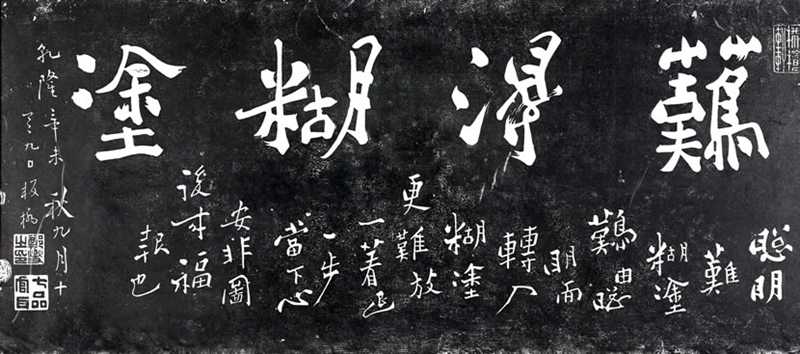 難得糊塗
聰明
難
糊塗
難由聰
明而
轉入
糊塗
更難放
一着退
一步
當下心
安非圖
後來福
報也
乾隆辛未秋九月十
有九日板橋
七品官耳